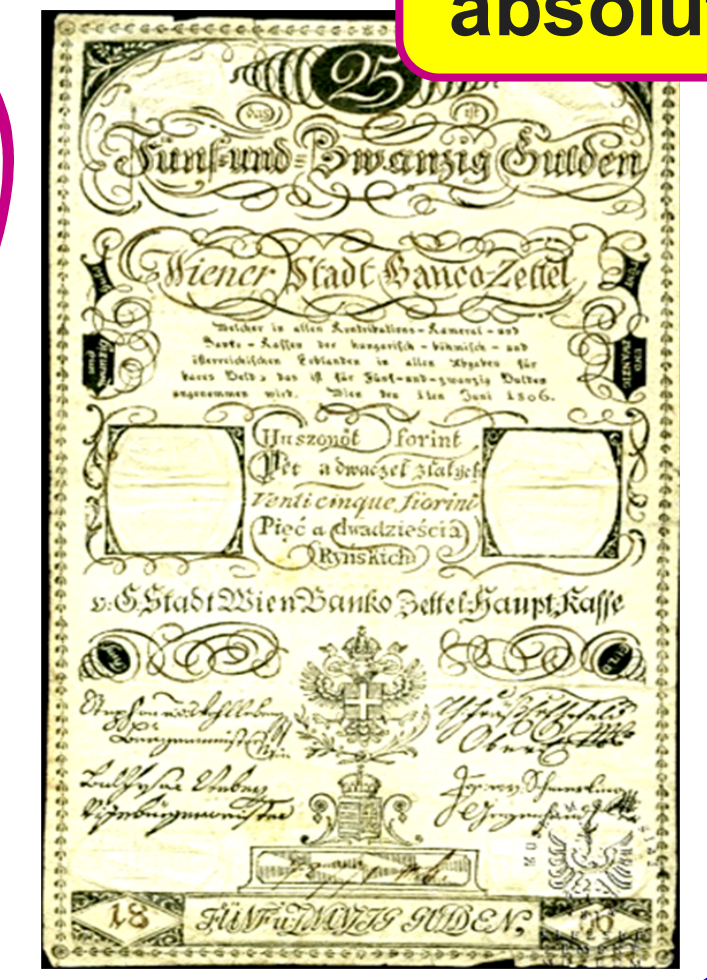 absolu
25
das ist
Fünf-und-Zwanzig Gulden
Wiener Stadt Banco-Zettel
Welcher in allen Kontributions-Kameral-und
Banko-Kassen der hungarisch-böhmisch-und
österreichischen Erblanden in allen Abgaben für
bares Geld, das ist für Fünf-und-zwanzig Gulden
angenommen wird. Wien den 1ten Juni 1806.
UND ZWANZIG
Huszonöt forint
Pět a dwaczet zlatych
Venti cinque fiorini
Pięć a dwadzieścia
Ryńskich
v: G. Stadt Wien Banko Zettel Haupt Kasse
18 FÜNF u. ZWANZIG GULDEN,